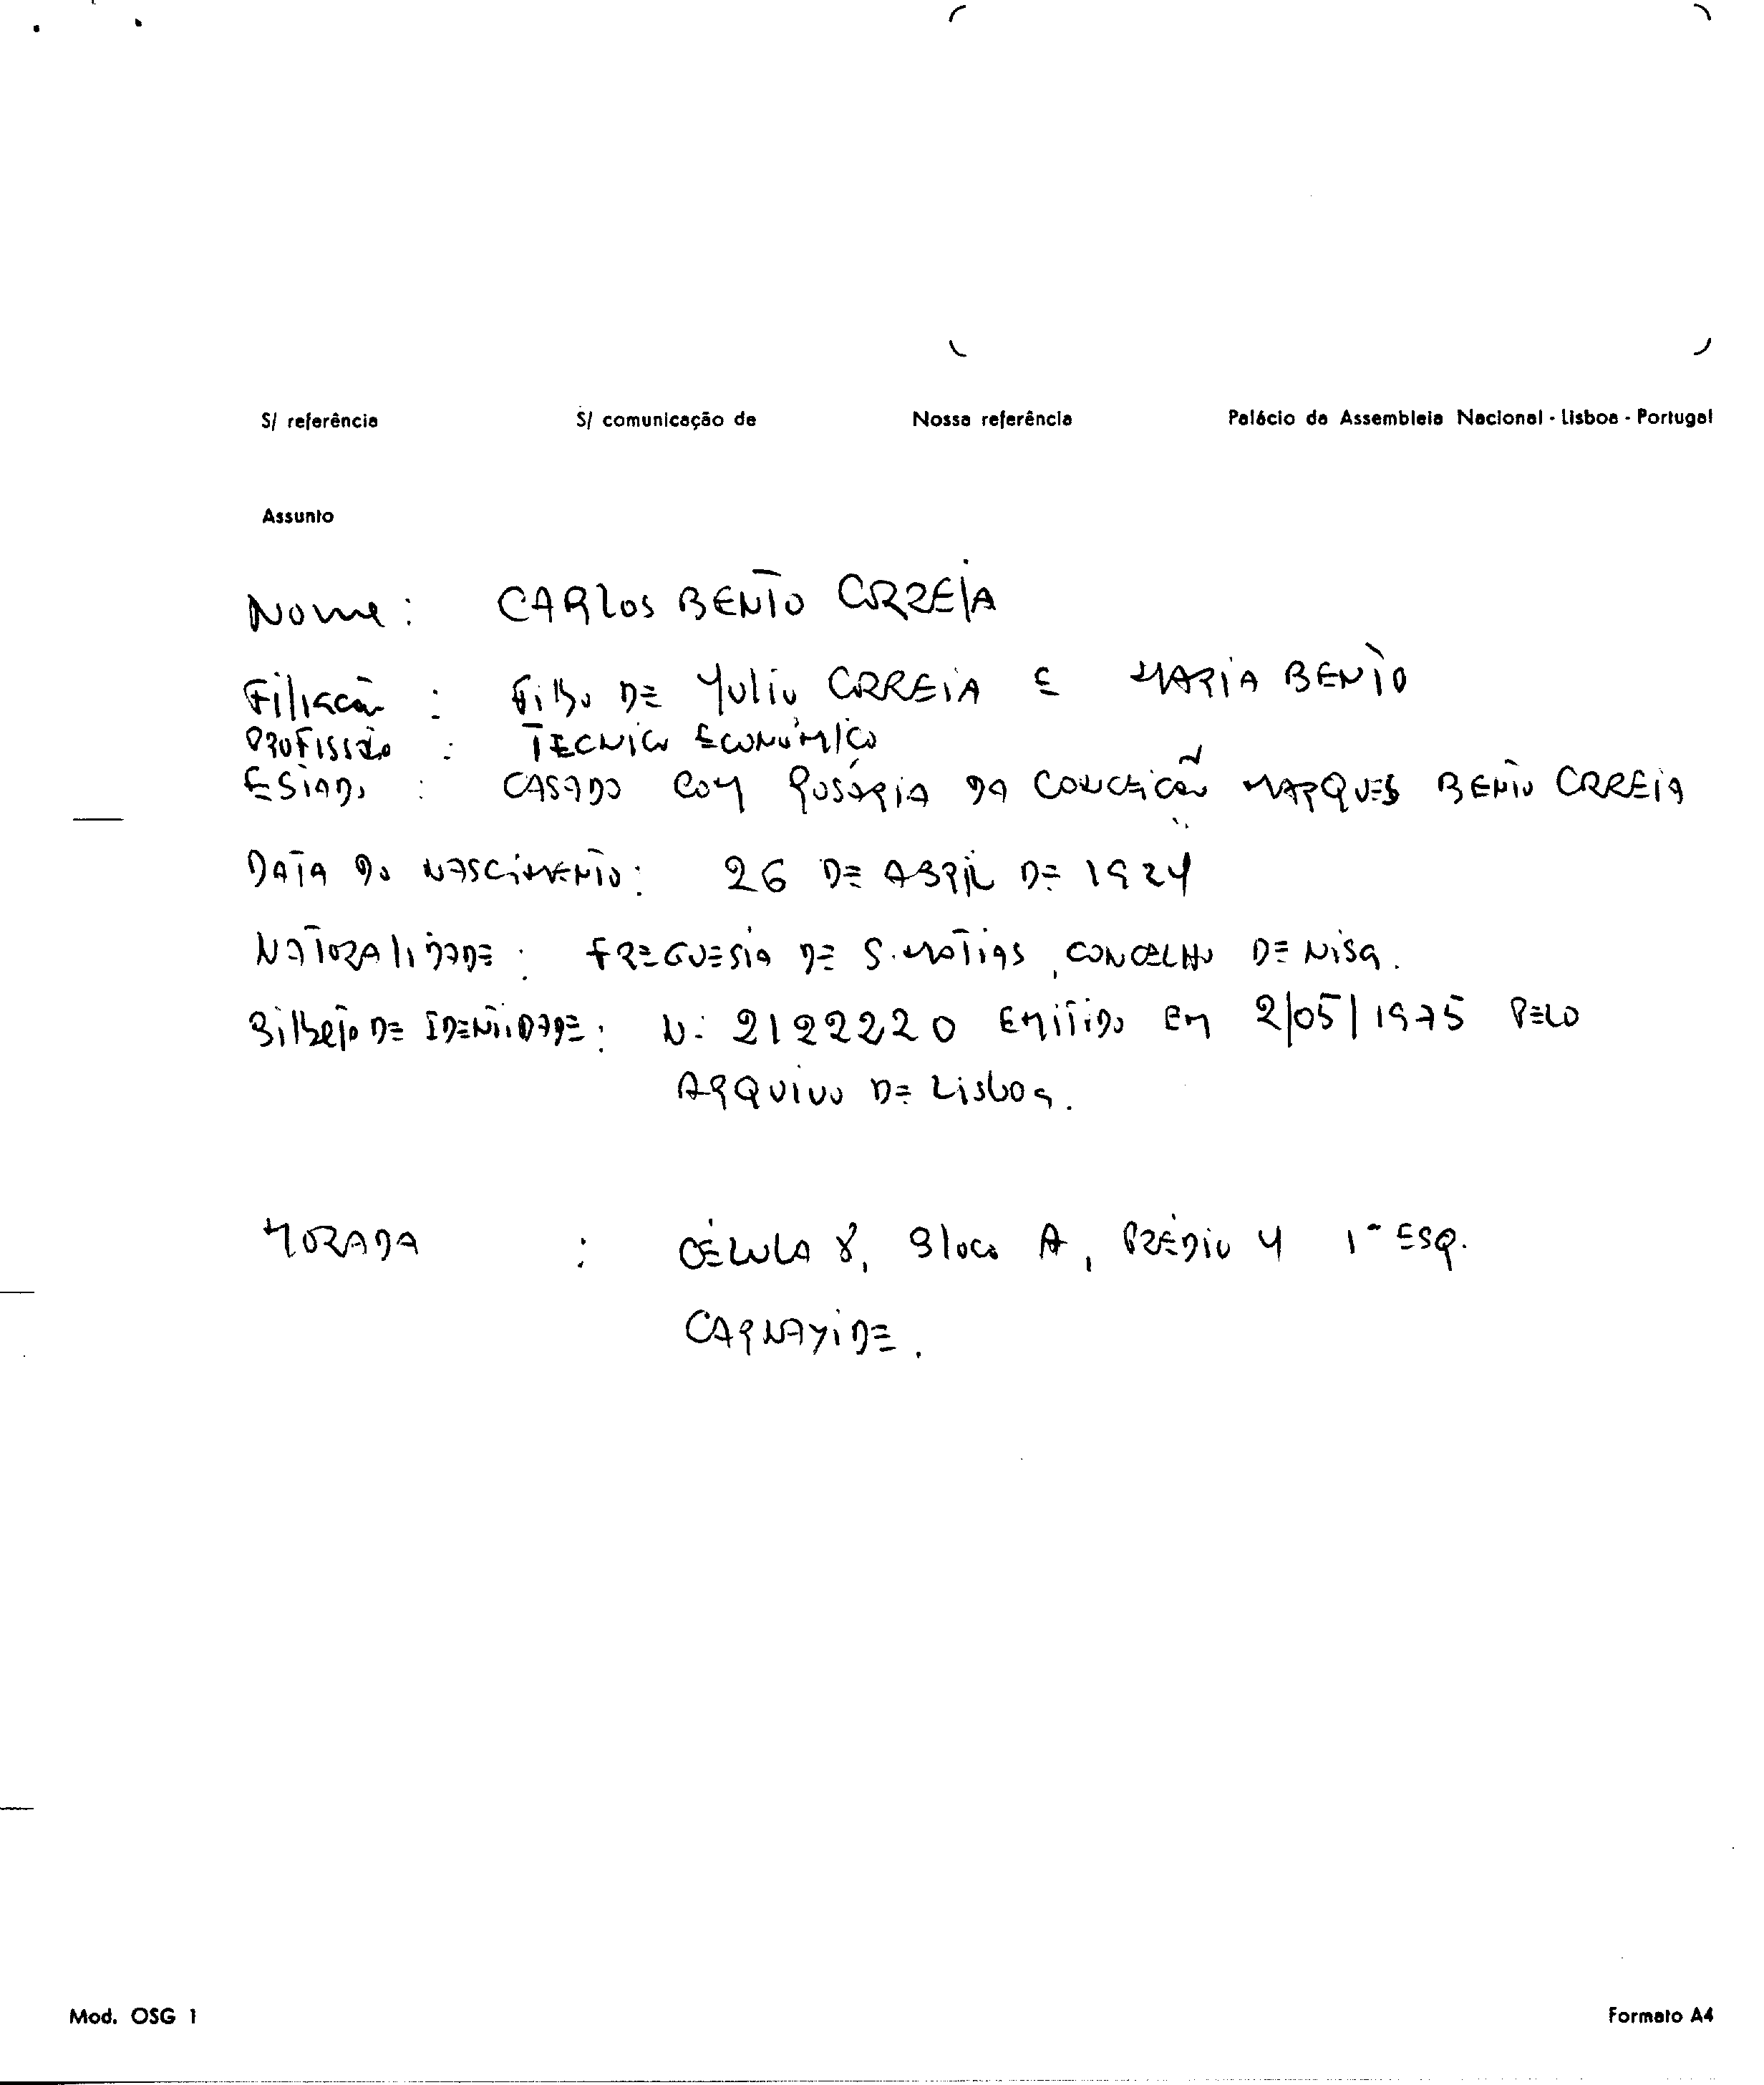 S/ referência S/ comunicação de Nossa referência Palácio da Assembleia Nacional - Lisboa - Portugal
Assunto
Nome: CARLOS BENTO CORREIA
Filiação : Filho DE Julio CORREIA E MARIA BENTO
PROFISSão : TECNICO ECONÓMICO
ESTADO : CASADO COM ROSÁRIA DA CONCEIÇÃO MARQUES BENTO CORREIA
DATA DO NASCIMENTO: 26 DE ABRIL DE 1924
NATURALIDADE : FREGUESIA DE S. MATIAS, CONCELHO DE NISA.
Bilhete DE IDENTIDADE: N: 2122220 EMITIDO EM 2/05/1975 PELO
ARQUIVO DE LISBOA.
MORADA : CÉLULA 8, Bloco A, PRÉDIO 4 1º ESQ.
CARNAXIDE.
Mod. OSG 1 Formato A4